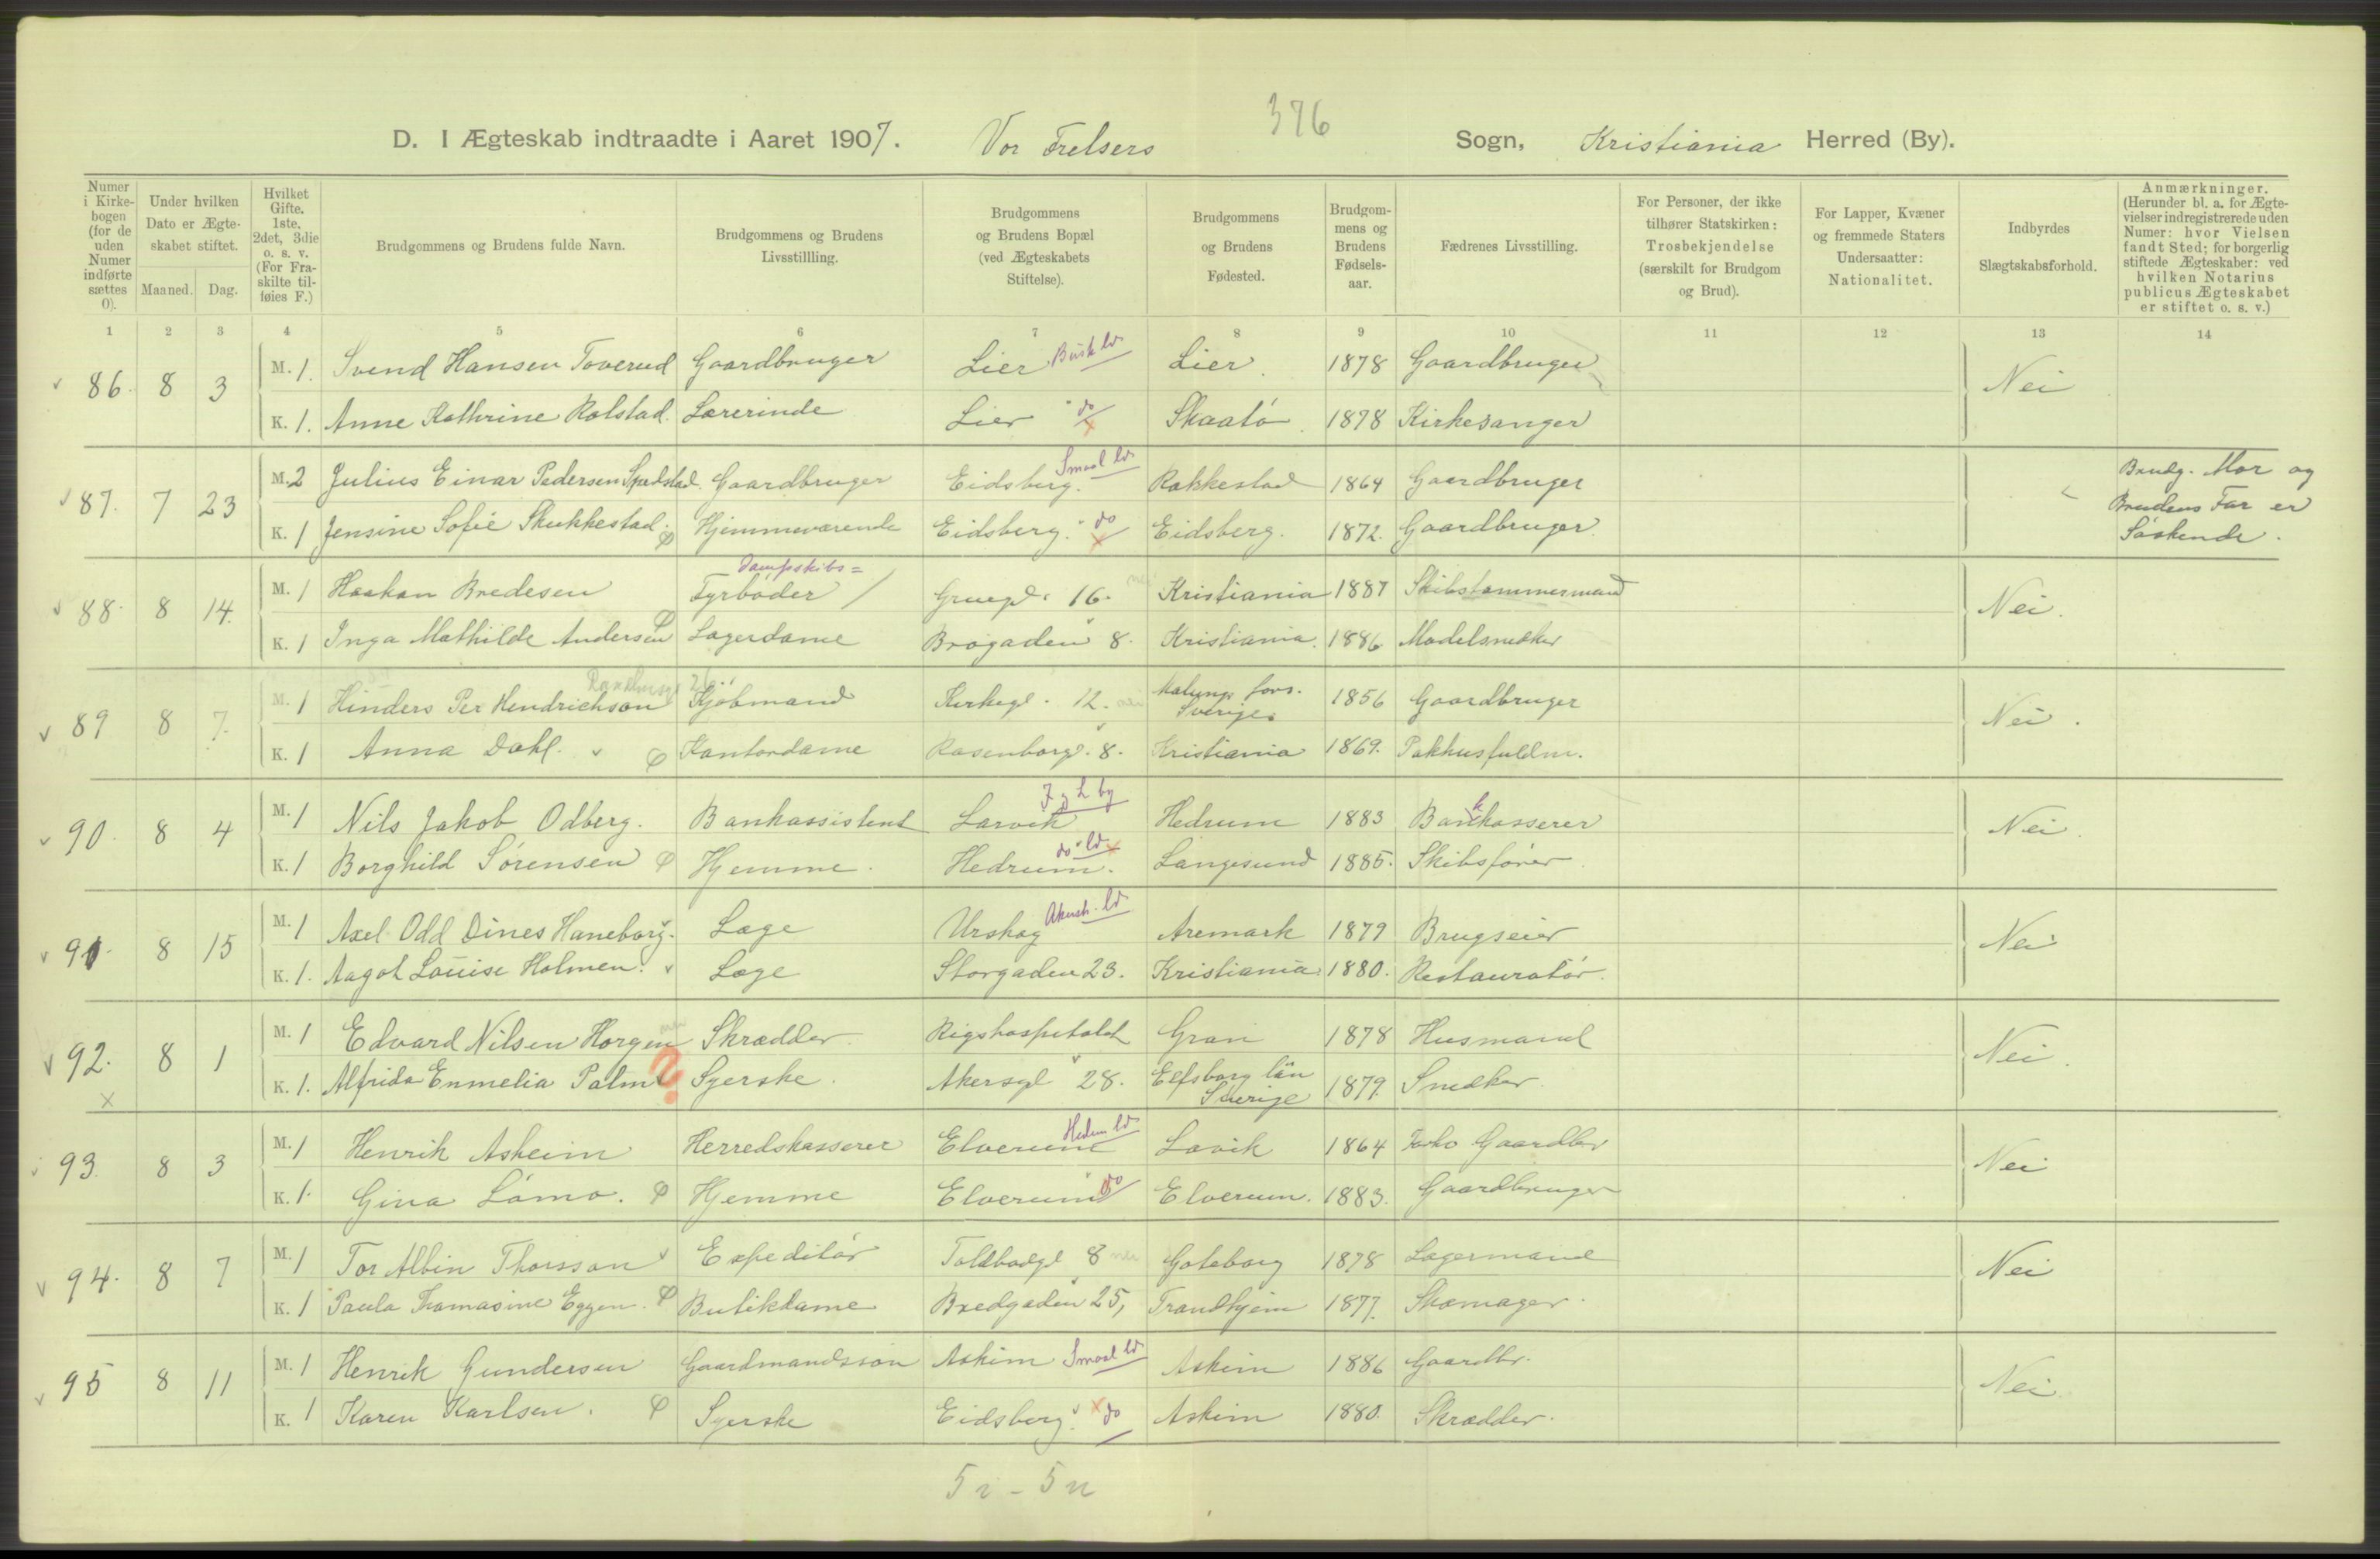 376
D. I Ægteskab indtraadte i Aaret 1907. Vor Frelsers Sogn, Kristiania Herred (By).
Numer i Kirke-bogen (for de uden Numer indførte sættes 0).
Under hvilken Dato er Ægte-skabet stiftet.
Maaned. Dag.
Hvilket Gifte. 1ste, 2det, 3die o. s. v. (For Fra-skilte til-føies F.)
Brudgommens og Brudens fulde Navn.
Brudgommens og Brudens Livsstillling.
Brudgommens og Brudens Bopæl (ved Ægteskabets Stiftelse).
Brudgommens og Brudens Fødested.
Brudgom-mens og Brudens Fødsels-aar.
Fædrenes Livsstilling.
For Personer, der ikke tilhører Statskirken: Trosbekjendelse (særskilt for Brudgom og Brud).
For Lapper, Kvæner og fremmede Staters Undersaatter: Nationalitet.
Indbyrdes Slægtskabsforhold.
Anmærkninger. (Herunder bl. a. for Ægte-vielser indregistrerede uden Numer: hvor Vielsen fandt Sted; for borgerlig stiftede Ægteskaber: ved hvilken Notarius publicus Ægteskabet er stiftet o. s. v.)
1 2 3 4 5 6 7 8 9 10 11 12 13 14
86. 8 3 M. 1. Svend Hansen Toverud Gaardbruger Lier Busk ld Lier. 1878 Gaardbruger Nei
K. 1. Anne Kathrine Rolstad. Lærerinde Lier " do Skaatö 1878 Kirkesanger
87. 7 23 M. 2 Julius Einar Pedersen Spædstad. Gaardbruger Eidsberg. Smaal ld Rakkestad 1864 Gaardbruger Brudg. Mor og
K. 1 Jensine Sofie Skukkestad. Hjemmeværende Eidsberg. " do Eidsberg. 1872. Gaardbruger. Brudens Far er
Söskende.
88. 8 14. M. 1 Haakon Bredesen Dampskibs= Fyrböder Gruegd. 16. Kristiania 1887 Skibstømmermand Nei.
K. 1 Inga Mathilde Andersen Lagerdame Brogaden 8. Kristiania. 1886. Modelsnedker
89 8 7. M. 1 Hinders Per Hendrichson Kjöbmand Kirkegd. 12. Malungs fors. Sverige. 1856 Gaardbruger Nei.
K. 1 Anna Dahl. Kontordame Rosenborgd. 8. Kristiania 1869. Pakhusfuldm.
90. 8 4 M. 1 Nils Jakob Odberg. Bankassistent Larvik J & L by Hedrum 1883 Bankkasserer Nei.
K. 1 Borghild Sörensen Hjemme. Hedrum. do " ld Langesund 1885. Skibsförer.
91. 8 15 M. 1 Axel Odd Dines Haneborg. Læge Urskog Akersh. ld Aremark 1879 Brugseier Nei
K. 1. Aagot Louise Holmen. Læge Storgaden 23. Kristiania. 1880. Restauratör.
92. 8 1 M. 1 Edvard Nilsen Horgen Skrædder. Rigshospitalet Gran 1878 Husmand Nei.
K. 1. Alfrida Emmelia Palm Syerske. Akersgd 28. Elfsborg län Sverige 1879. Snedker.
93. 8 3 M. 1 Henrik Asheim Herredskasserer Elverum Hedm ld Lavik 1864 Gaardbr Nei
K. 1. Gina Lömo. Hjemme Elverum do Elverum. 1883. Gaardbruger
94. 8 7 M. 1 Tor Albin Thorsson Expeditör Toldbodgd 8 Göteborg 1878 Lagermand Nei
K. 1 Paula Thomasine Eggen. Butikdame Bredgaden 25, Trondhjem 1877. Skomager.
95 8 11 M. 1 Henrik Gundersen Gaardmandssön Askim Smaal ld Askim 1886 Gaardbr. Nei
K. 1 Karen Karlsen. Syerske Eidsberg. " do Askim 1880. Skrædder.
5 i - 5 u